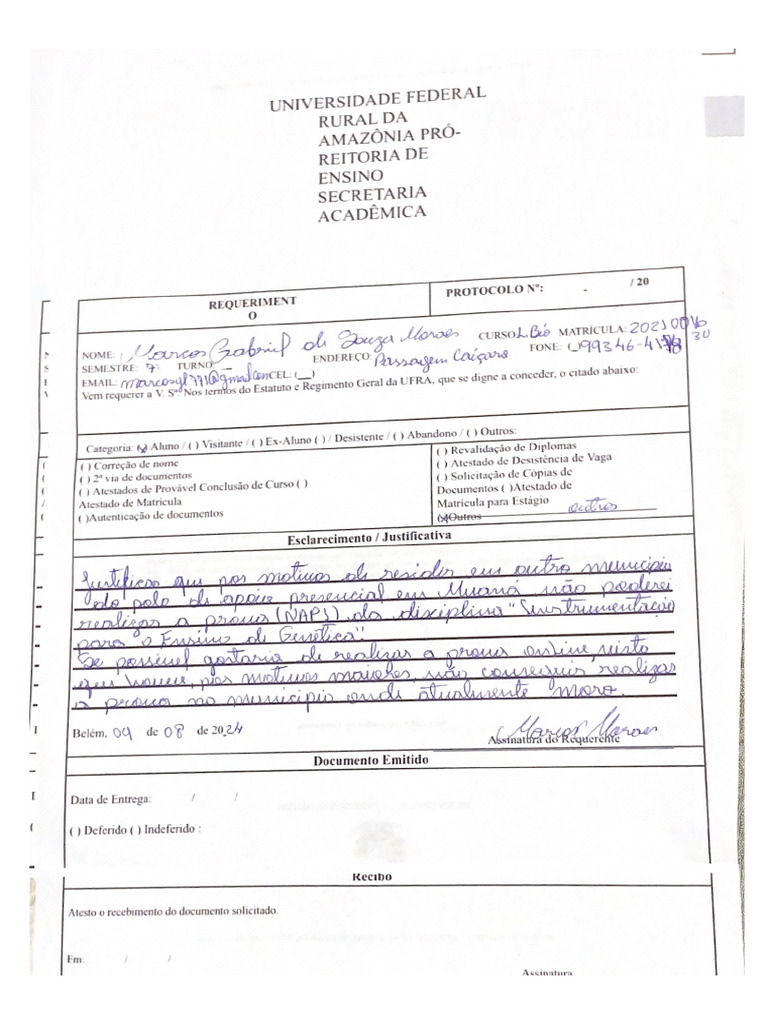 UNIVERSIDADE FEDERAL
RURAL DA
AMAZÔNIA PRÓ-
REITORIA DE
ENSINO
SECRETARIA
ACADÊMICA
REQUERIMENT
O
PROTOCOLO Nº: - / 20
NOME: Marcos Gabriel de Souza Moraes CURSO L. Bio MATRÍCULA: 20210016
30
SEMESTRE: 7º TURNO: ENDEREÇO Passagem Caiçara FONE: ( ) 99346-41
EMAIL: @gmail.com CEL: ( )
Vem requerer a V. Sª. Nos termos do Estatuto e Regimento Geral da UFRA, que se digne a conceder, o citado abaixo:
Categoria: (x) Aluno / ( ) Visitante / ( ) Ex-Aluno ( ) / Desistente / ( ) Abandono / ( ) Outros:
( ) Correção de nome
( ) 2ª via de documentos
( ) Atestados de Provável Conclusão de Curso ( )
Atestado de Matrícula
( )Autenticação de documentos
( ) Revalidação de Diplomas
( ) Atestado de Desistência de Vaga
( ) Solicitação de Cópias de
Documentos ( )Atestado de
Matrícula para Estágio
(x)Outros outros
Esclarecimento / Justificativa
Justifico que por motivos de residir em outro município
do polo de apoio presencial em Muaná não poderei
realizar a prova (NAP1) da disciplina "Instrumentação
para o Ensino de Genética".
Se possível gostaria de realizar a prova online, visto
que houve, por motivos maiores, não conseguir realizar
a prova no município onde atualmente moro.
Belém, 09 de 08 de 2024
Marcos Moraes
Assinatura do Requerente
Documento Emitido
Data de Entrega: / /
( ) Deferido ( ) Indeferido :
Recibo
Atesto o recebimento do documento solicitado.
Em: / /
Assinatura